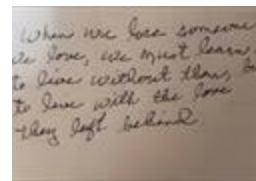 When we lose someone
we love, we must learn
to live without them, b
to live with the love
they left behind